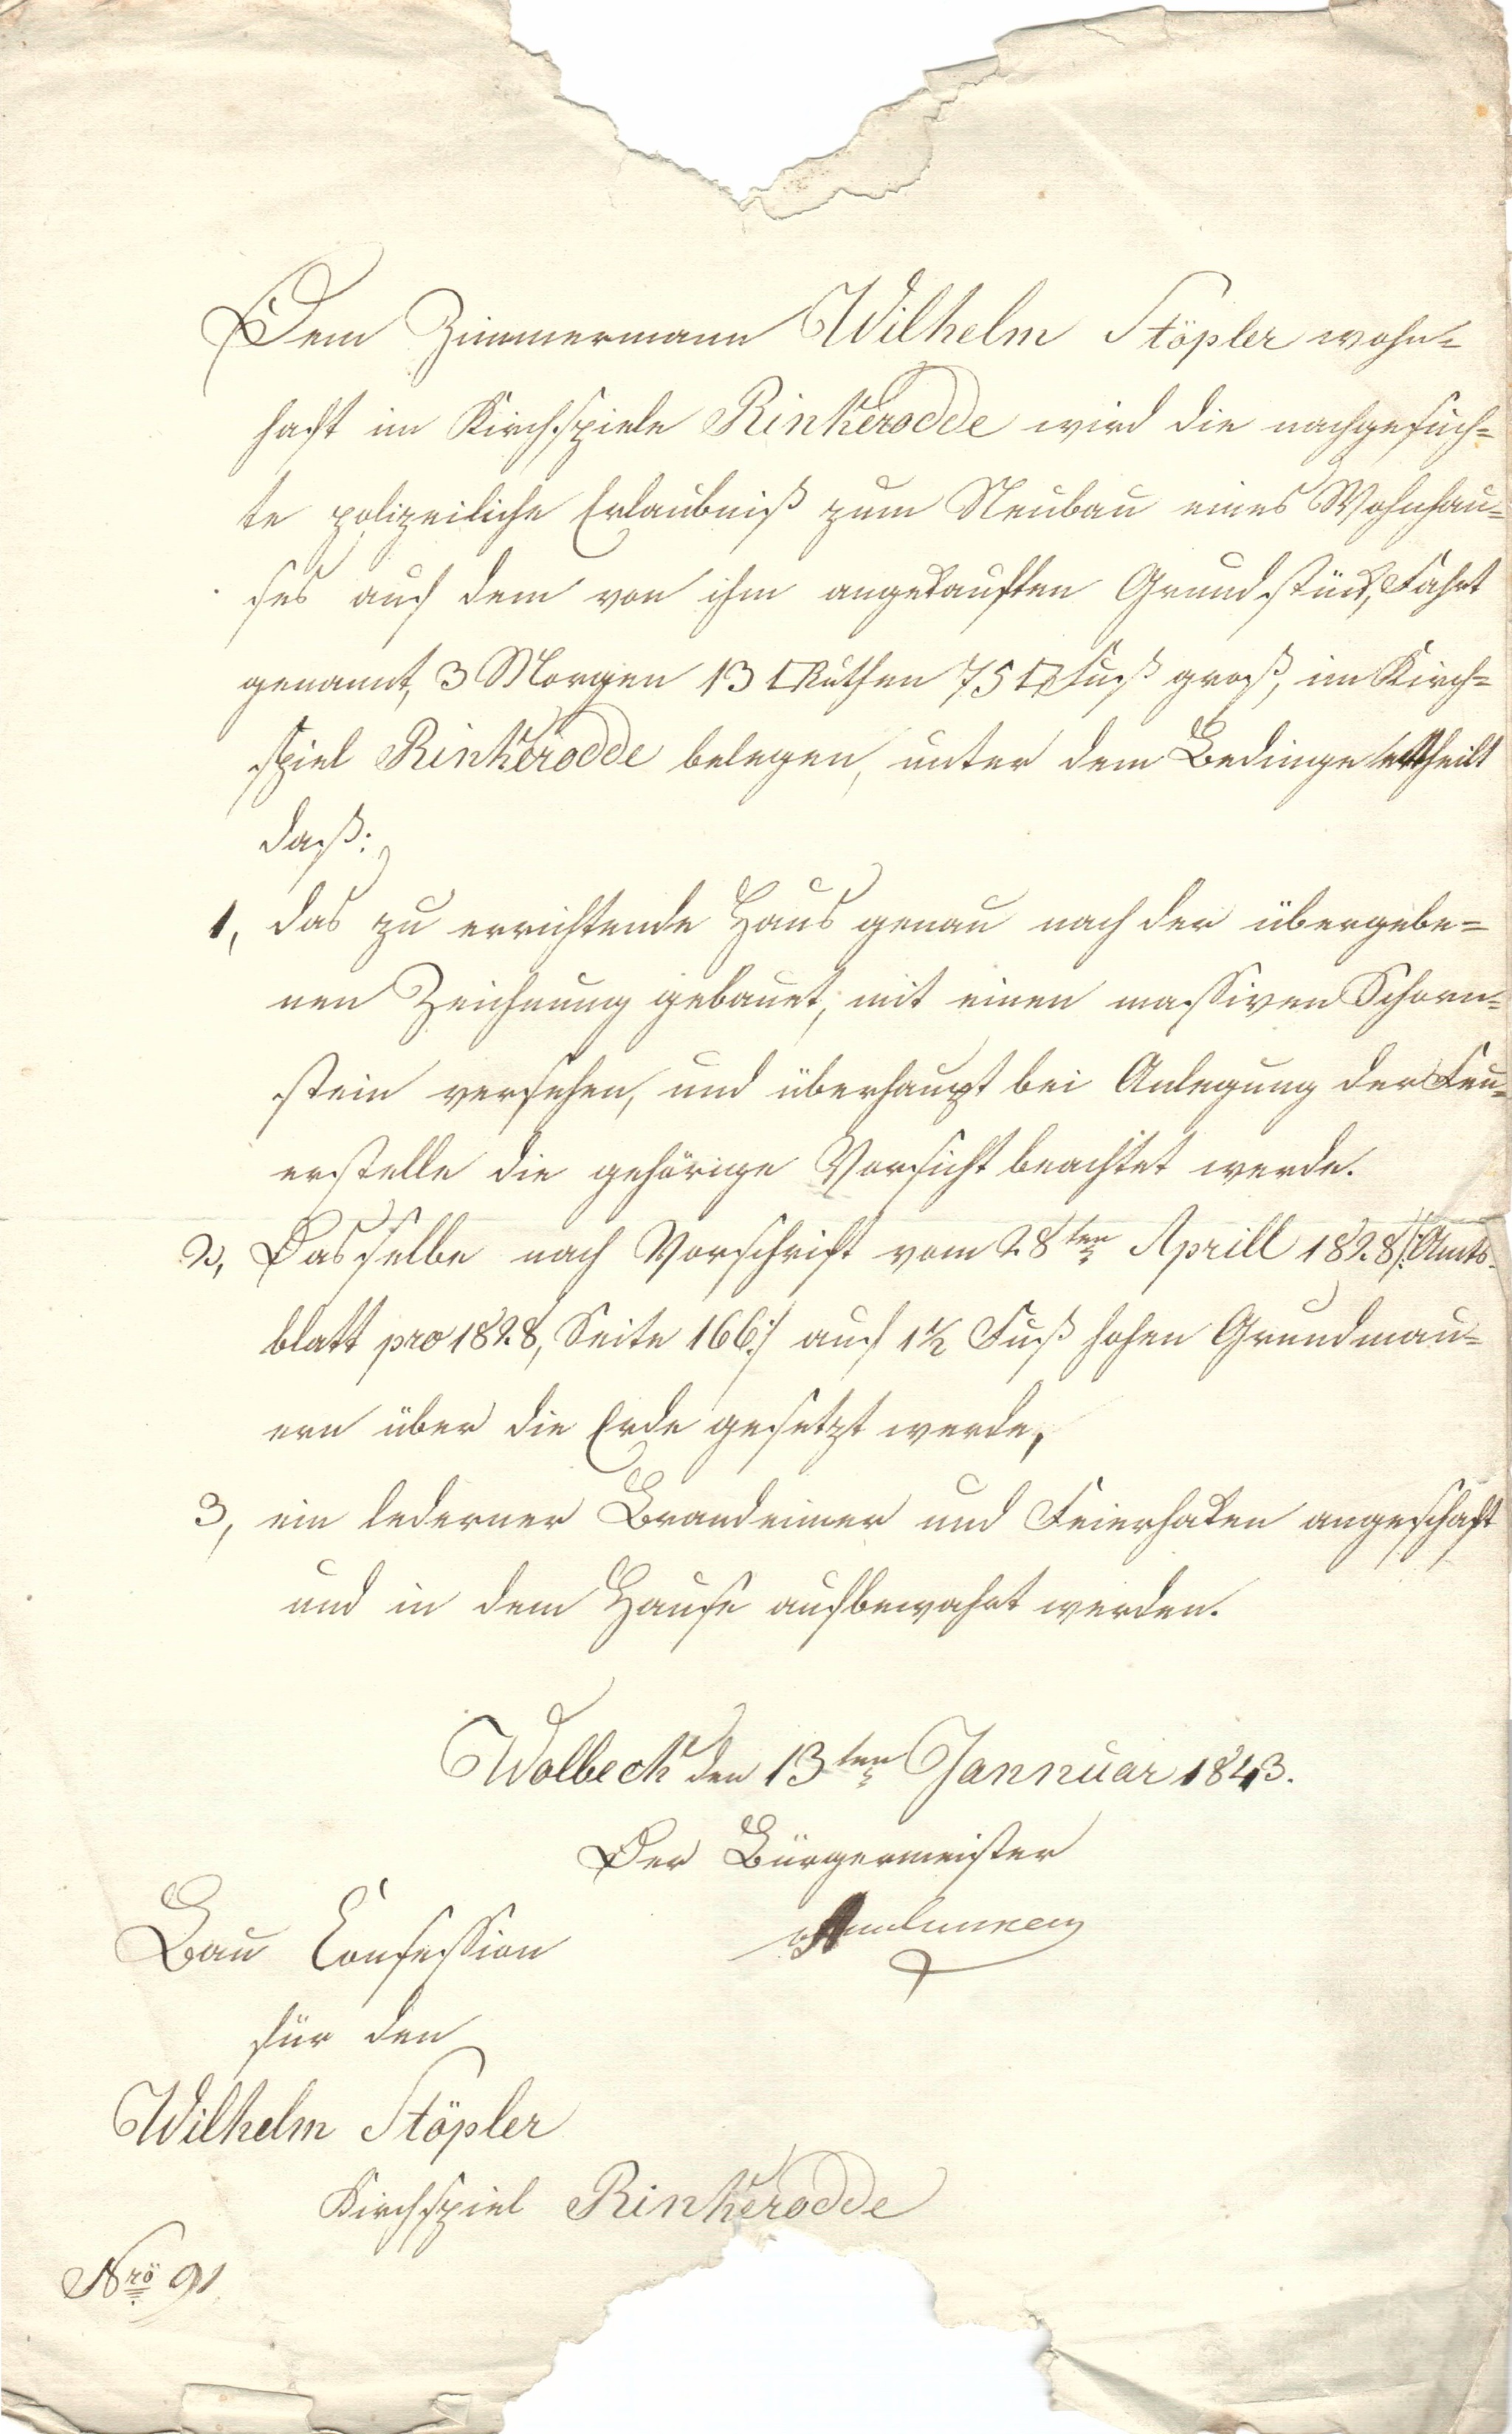 Dem Zimmermann Wilhelm Stöpler wohn=
haft im Kirchspiele Rinkerodde wird die nachgesuch=
te polizeiliche Erlaubniß zum Neubau eines Wohnhau=
ses auf dem von ihm angekauften Grundstück, Fahrt
genannt, 3 Morgen 13 □Ruthen 75 □Fuß groß, im Kirch=
spiel Rinkerodde belegen, unter dem Bedinge ertheilt
daß:
1, das zu errichtende Haus genau nach der übergebe=
nen Zeichnung gebauet, mit einen massiven Schorn=
stein versehen, und überhaupt bei Anlegung der Feu=
erstelle die gehörige Vorsicht beachtet werde.
2, Dasselbe nach Vorschrift vom 28ten Aprill 1828 /: Amts=
blatt pro 1828, Seite 166 :/ auf 1½ Fuß hohen Grundmau=
ern über die Erde gesetzt werde,
3, ein lederner Brandeimer und Feierhaken angeschaft
und in dem Hause aufbewahrt werden.
Wolbeck den 13ten Jannuar 1843.
Der Bürgermeister
Bau Consession
für den
Wilhelm Stöpler
Kirchspiel Rinkerodde
Nrö 91.